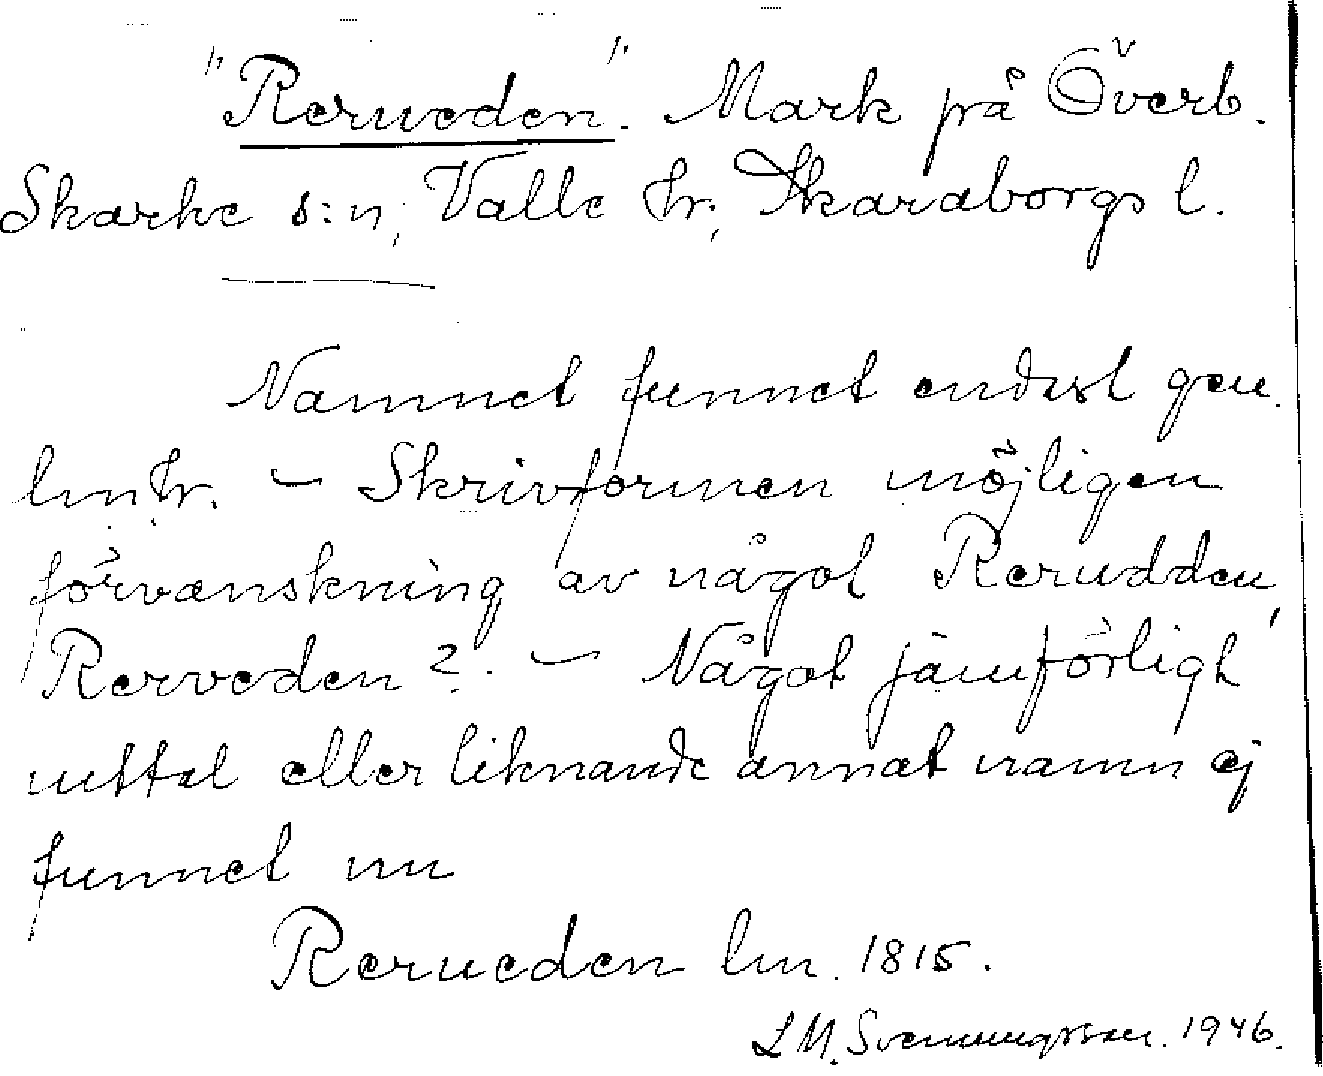 "Rerueden". Mark på Överb.
Skarke s:n, Valle hr, Skaraborgs l.
Namnet funnet endast gen.
lm.hr. – Skrivformen möjligen
förvanskning av något Rerudden,
Rerveden?. – Något jämförligt
uttal eller liknande annat namn ej
funnet nu
Rerueden lm. 1815.
L M. Svenungsson. 1946.